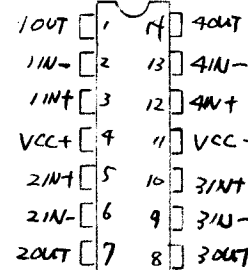 1OUT 1 14 4OUT
1IN- 2 13 4IN-
1IN+ 3 12 4IN+
VCC+ 4 11 VCC-
2IN+ 5 10 3IN+
2IN- 6 9 3IN-
2OUT 7 8 3OUT